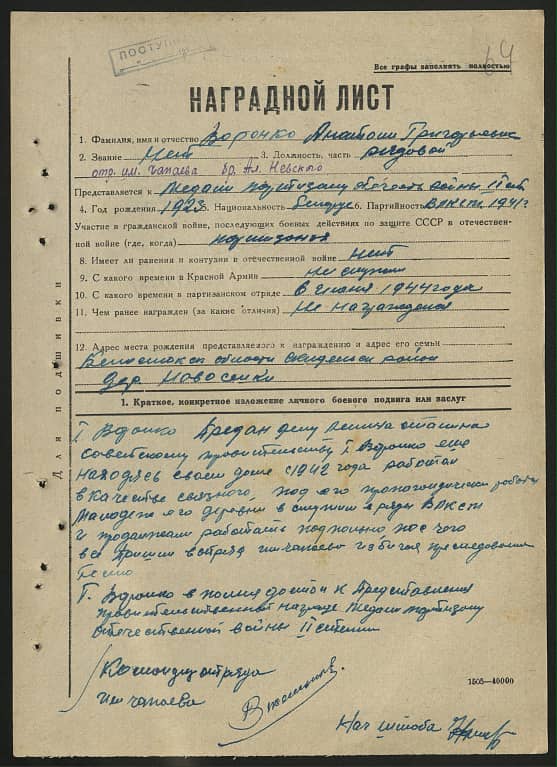 ПОСТУП
Все графы заполнять полностью
НАГРАДНОЙ ЛИСТ
1. Фамилия, имя и отчество Воронко Анатоли Григорьевич
2. Звание Нет 3. Должность, часть рядовой
отр. им. Чапаева бр. Ал. Невского
Представляется к Медали партизану отечест войны II ст
4. Год рождения 1923 5. Национальность белорус 6. Партийность ВЛКСМ 1941 г
Участие в гражданской войне, последующих боевых действиях по защите СССР и отечествен-
ной войне (где, когда)
8. Имеет ли ранения и контузии в отечественной войне нет
9. С какого времени в Красной Армии не служил
10. С какого времени в партизанском отряде в июня 1944 года
11. Чем ранее награжден (за какие отличия) Не награждался
12. Адрес места рождения представляемого к награждению и адрес его семьи
Белостокск области Скидельски район
дер Новоселки
Для подшивки
1. Краткое, конкретное изложение личного боевого подвига или заслуг
Т Воронко Предан делу Ленина Сталина
советскому правительству Т. Воронко еще
находясь своем доме с 1942 года работал
в качестве связного, под его пропогандически работы
Молодеж его деревни вступили в ряды ВЛКСМ
и продолжали работать подпольно после чего
все пришли в отряд им чапаева избигая преследования
Т. Воронко в полне достои к Представления
правительственной награде Медали партизану
Отечественной войны II степени
Командир отряда
им чапаева
1505—40000
Нач штаба